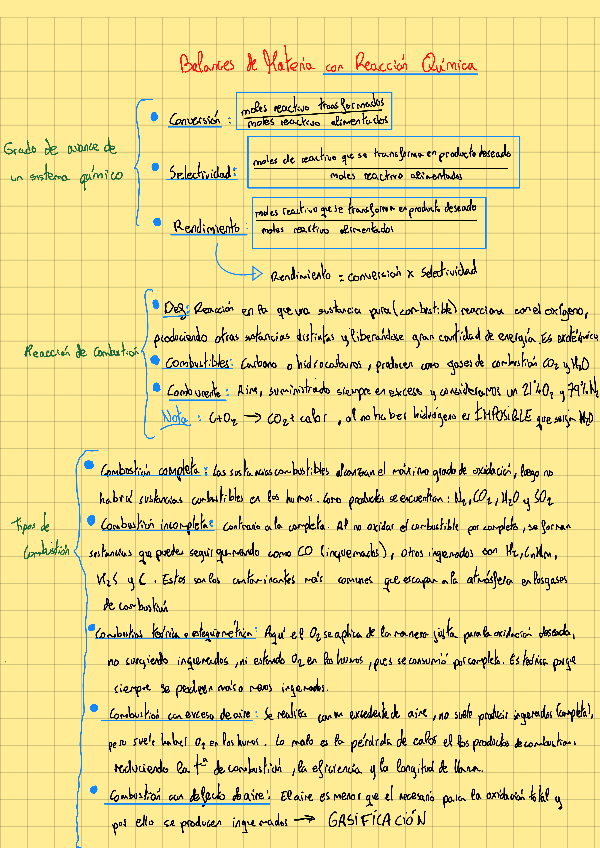 Balances de Materia con Reacción Química
Grado de avance de
un sistema químico
• Conversión : moles reactivo transformados
moles reactivo alimentados
• Selectividad: moles de reactivo que se transforma en producto deseado
moles reactivo alimentados
• Rendimiento: moles reactivo que se transforman en producto deseado
moles reactivo alimentados
Rendimiento = conversión x selectividad
Reacción de combustión
• Def: Reacción en la que una sustancia pura (combustible) reacciona con el oxígeno,
produciendo otras sustancias distintas y liberándose gran cantidad de energía. Es exotérmica
• Combustibles: Carbono o hidrocarburos, producen como gases de combustión CO2 y H2O
• Comburente: Aire, suministrado siempre en exceso y consideramos un 21% O2 y 79% N2
Nota : C+O2 → CO2 + calor , al no haber hidrógeno es IMPOSIBLE que surja H2O
Tipos de
Combustión
• Combustión completa: Las sustancias combustibles alcanzan el máximo grado de oxidación, luego no
habrá sustancias combustibles en los humos. Como productos se encuentran: N2, CO2, H2O y SO2
• Combustión incompleta: contrario a la completa. Al no oxidar el combustible por completo, se forman
sustancias que pueden seguir quemando como CO (inquemados), otros inquemados son H2, CnHm,
H2S y C. Estos son los contaminantes más comunes que escapan a la atmósfera en los gases
de combustión
• Combustión teórica o estequiométrica: Aquí el O2 se aplica de la manera justa para la oxidación deseada,
no surgiendo inquemados, ni estando O2 en los humos, pues se consumió por completo. Es teórica porque
siempre se producen más o menos inquemados.
• Combustión con exceso de aire: Se realiza con un excedente de aire, no suele producir inquemados (completa),
pero suele haber O2 en los humos. Lo malo es la pérdida de calor el los productos de combustión,
reduciendo la tª de combustión, la eficiencia y la longitud de llama.
• Combustión con defecto de aire: El aire es menor que el necesario para la oxidación total y
por ello se producen inquemados → GASIFICACIÓN